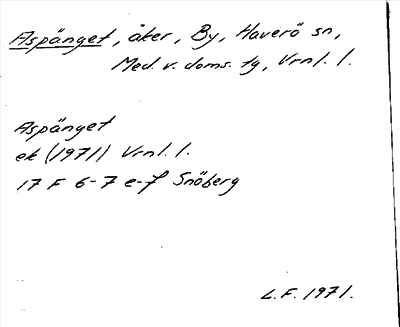 Aspänget, åker, By, Haverö sn,
Med. v. doms. tg, Vrnl. l.
Aspänget
ek (1971) Vrnl. l.
17 F 6-7 e-f Snöberg
L.F. 1971.